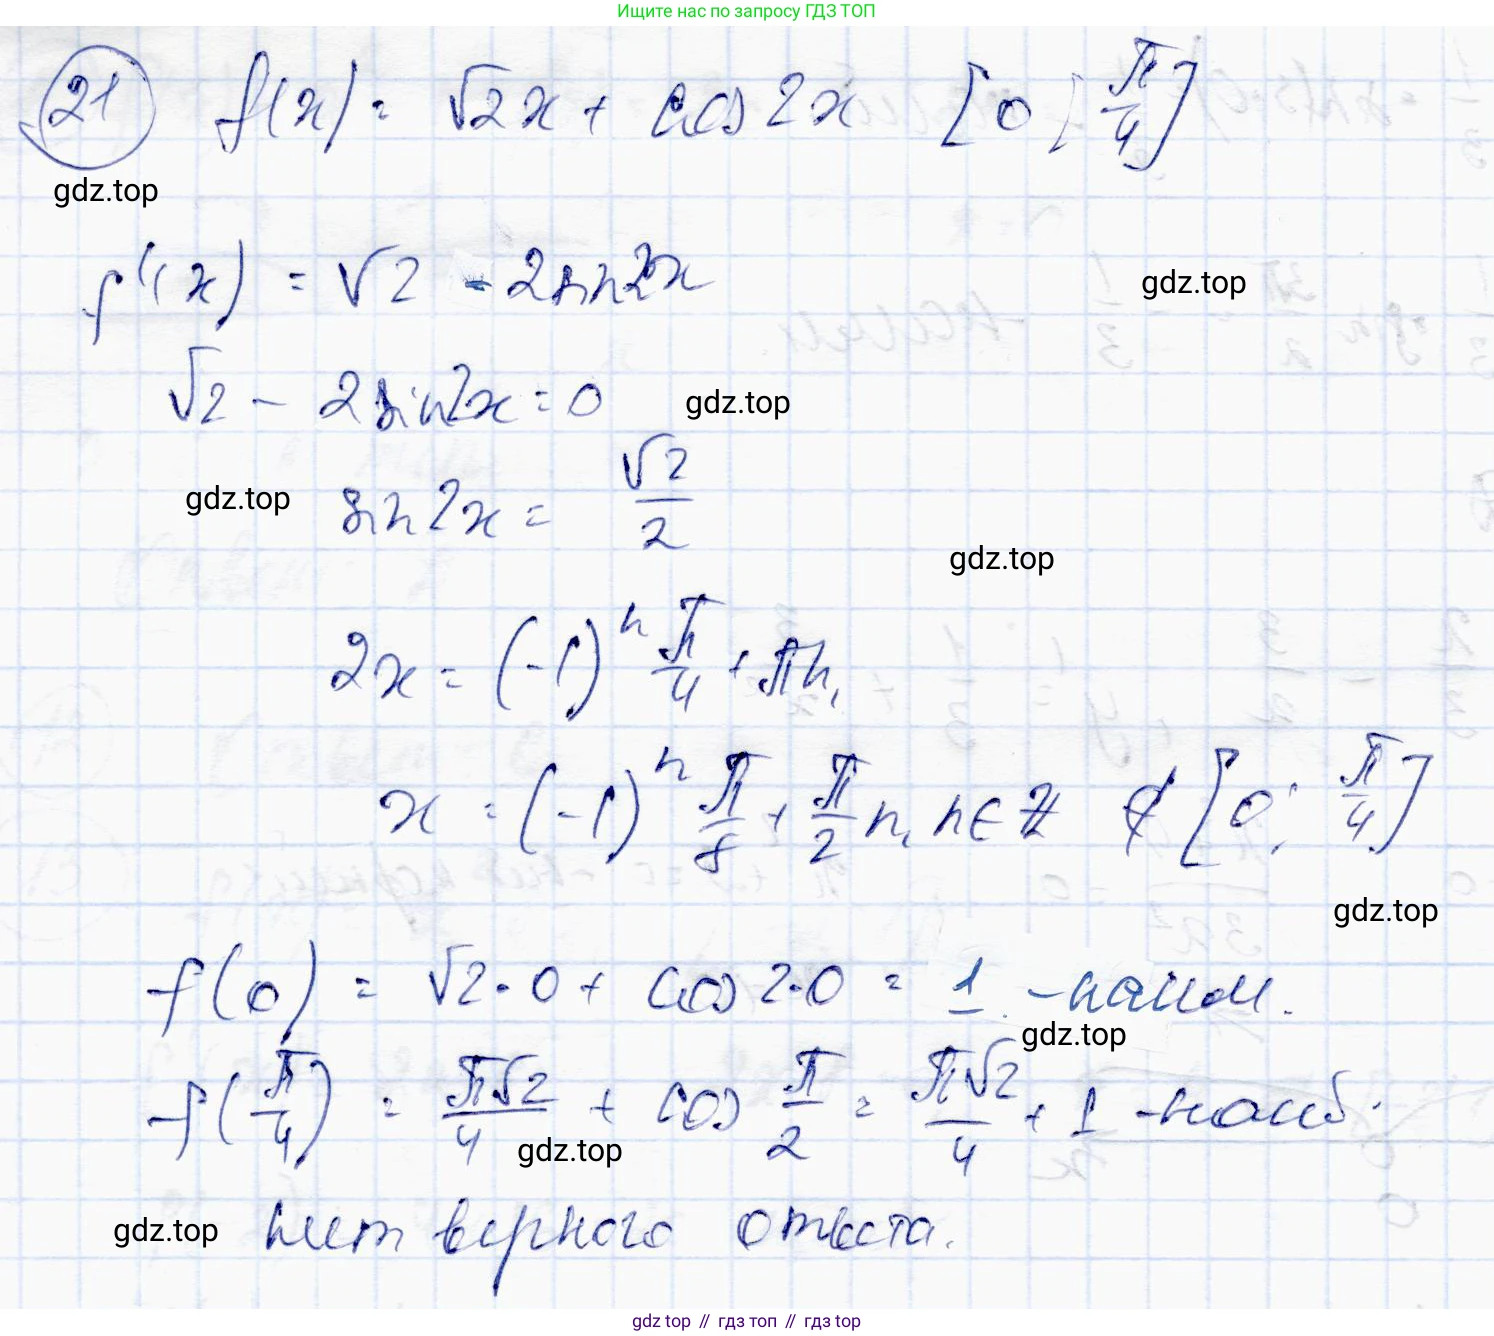 Ищите нас по запросу ГДЗ ТОП
21 f(x) = √2x + cos 2x [0; π/4]
gdz.top
f'(x) = √2 - 2sin2x
gdz.top
√2 - 2sin2x = 0
gdz.top
gdz.top
sin2x = √2/2
gdz.top
2x = (-1)^n π/4 + πn,
x = (-1)^n π/8 + π/2 n, n∈Z ∉ [0; π/4]
gdz.top
f(0) = √2·0 + cos2·0 = 1 - наим.
gdz.top
f(π/4) = π√2/4 + cos π/2 = π√2/4 + 1 - наиб.
gdz.top
gdz.top
нет верного ответа.
gdz top // гдз топ // гдз top